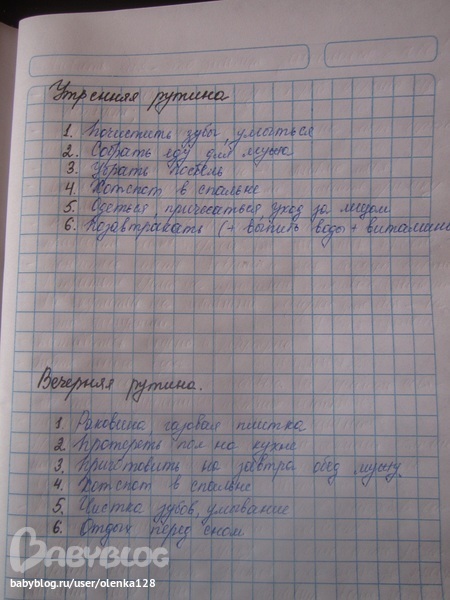 Утренняя рутина
1. Почистить зубы, умыться
2. Собрать еду для мужа
3. Убрать постель
4. Хотспот в спальне
5. Одеться, причесаться, уход за лицом
6. Позавтракать (+ выпить воды + витамины
Вечерняя рутина.
1. Раковина газовая плитка
2. Протереть пол на кухне
3. Приготовить на завтра обед мужу
4. Хотспот в спальне
5. Чистка зубов, умывание
6. Отдых перед сном
BABYBLOG
babyblog.ru/user/olenka128